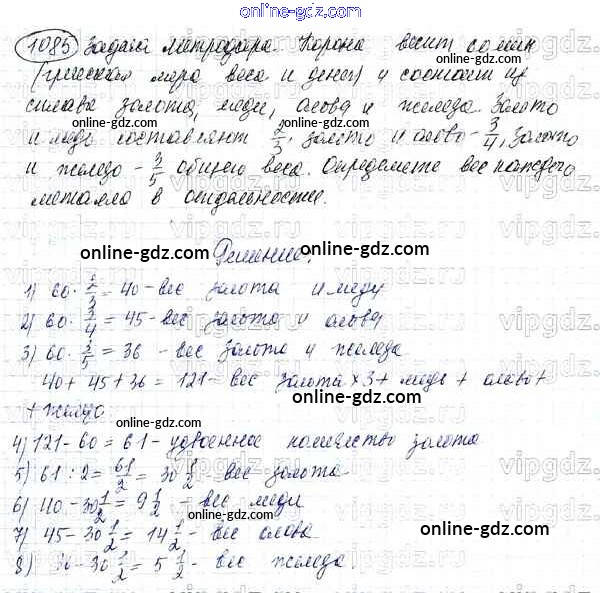 online-gdz.com
1085 Задача Метродора. Корона весит 60 мин
(греческая мера веса и денег) и состоит из
сплава золота, меди, олова и железа. Золото
и медь составляют 2/3, золото и олово - 3/4, золото
и железо - 3/5 общего веса. Определите вес каждого
металла в отдельности.
online-gdz.com Решение: online-gdz.com
1) 60 · 2/3 = 40 - вес золота и меди
2) 60 · 3/4 = 45 - вес золота и олова
3) 60 · 3/5 = 36 - вес золота и железа
40 + 45 + 36 = 121 - вес золота × 3 + медь + олово +
+ железо online-gdz.com online-gdz.com
4) 121 - 60 = 61 - удвоенное количество золота
5) 61 : 2 = 61/2 = 30 1/2 - вес золота
6) 40 - 30 1/2 = 9 1/2 - вес меди
online-gdz.com
7) 45 - 30 1/2 = 14 1/2 - вес олова online-gdz.com
8) 36 - 30 1/2 = 5 1/2 - вес железа.
online-gdz.com
vipgdz.com